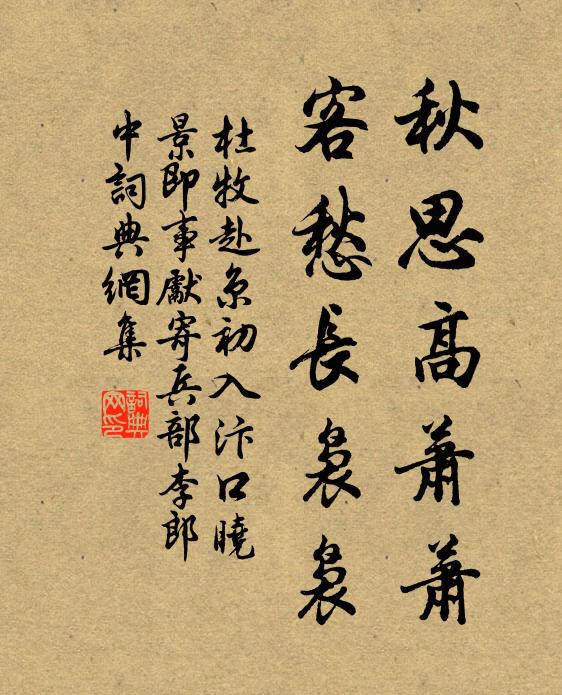 秋思高蕭蕭
客愁長裊裊
杜牧赴京初入汴口曉
景即事獻寄兵部李郎
中詞典網集
詞典
网印